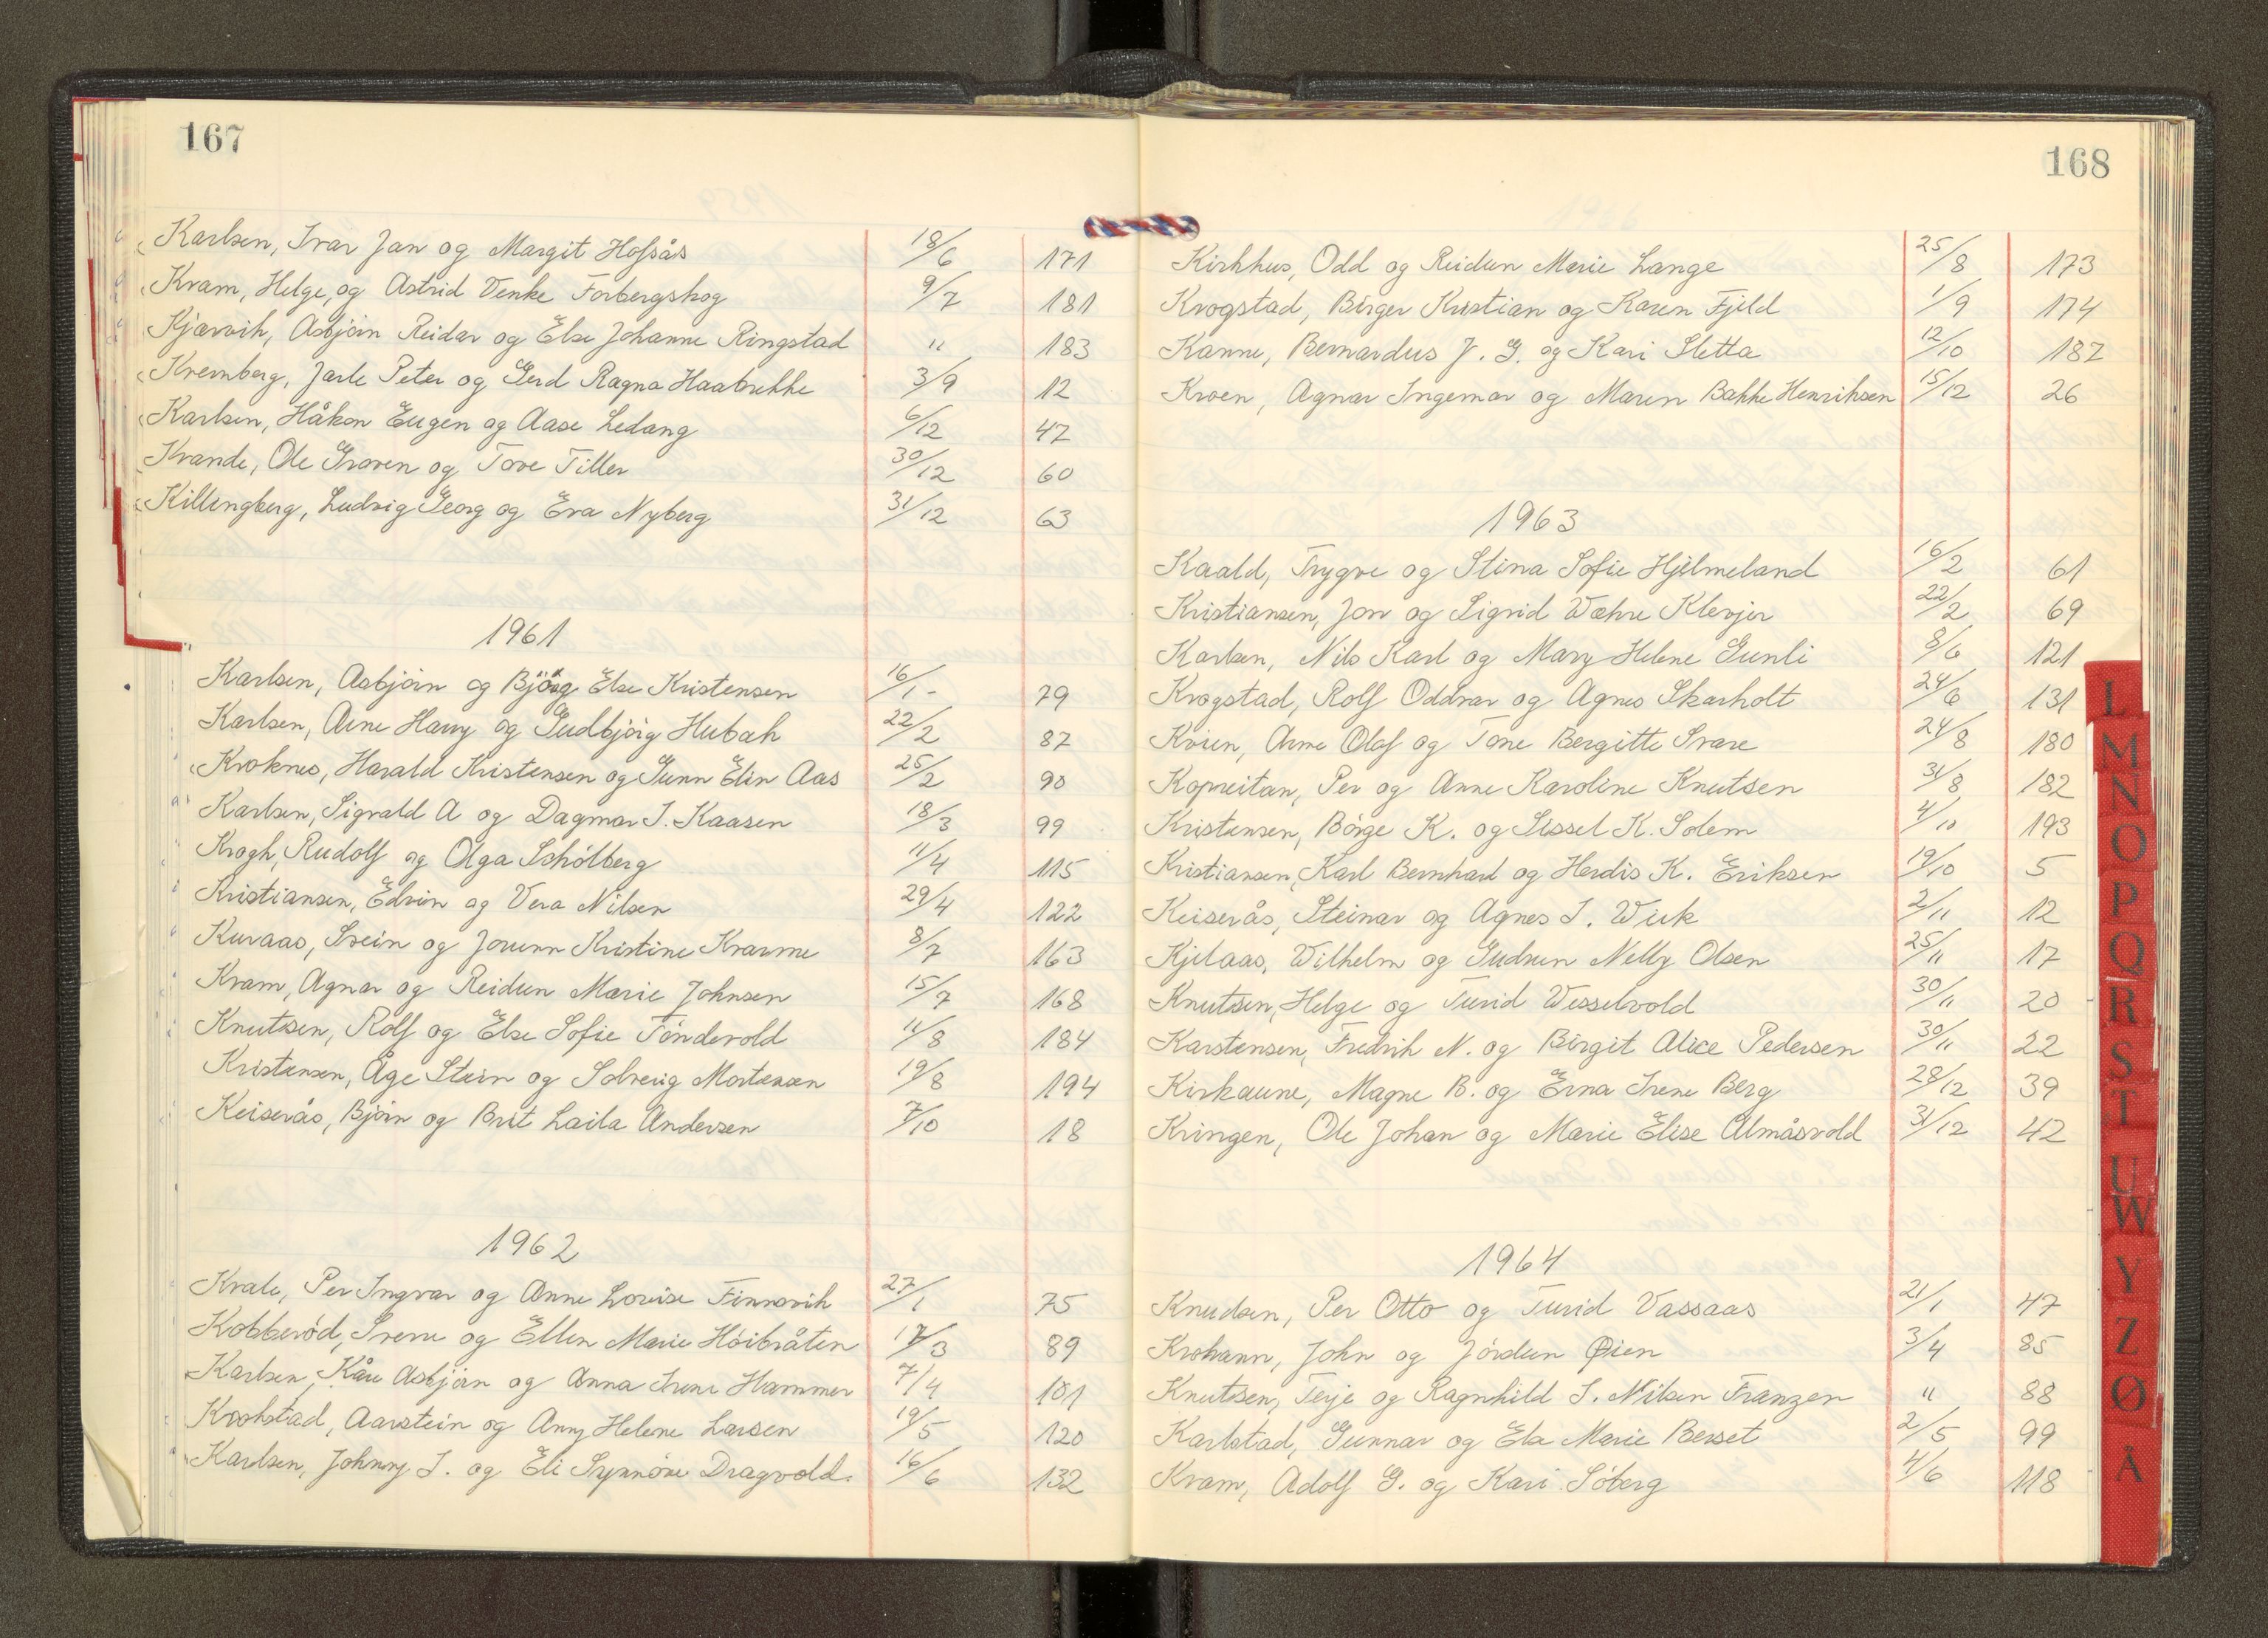 167
Karlsen, Ivar Jan og Margit Hofsås 18/6 171
Kram, Helge, og Astrid Venke Forbergskog 9/7 181
Kjærvik, Asbjörn Reidar og Else Johanne Ringstad " 183
Kremberg, Jarle Peter og Gerd Ragna Haabrekke 3/9 12
Karlsen, Håkon Eugen og Aase Ledang 6/12 47
Krande, Ole Graven og Tove Tiller 30/12 60
Killingberg, Ludvig Georg og Eva Nyberg 31/12 63
1961
Karlsen, Asbjörn og Bjørg Else Kristensen 16/1- 79
Karlsen, Arne Harry og Gudbjörg Hubak 22/2 87
Kroknes, Harald Kristensen og Gunn Elin Aas 25/2 90
Karlsen, Sigvald A og Dagmar I. Kaasen 18/3 99
Krogh, Rudolf og Olga Schölberg 11/4 115
Kristiansen, Edvin og Vera Nilsen 29/4 122
Kuvaas, Svein og Jorunn Kristine Kvamme 8/7 163
Kram, Agnar og Reidun Marie Johnsen 15/7 168
Knutsen, Rolf og Else Sofie Töndevold 11/8 184
Kristensen, Åge Stein og Solveig Mortensen 19/8 194
Keiserås, Björn og Brit Laila Andersen 7/10 18
1962
Kvale, Per Ingvar og Anne Lovise Finnsvik 27/1 75
Kobberöd, Sverre og Ellen Marie Höibråten 17/3 89
Karlsen, Kåre Asbjörn og Anna Irene Hammer 7/4 101
Krokstad, Aarstein og Anny Helene Larsen 19/5 120
Karlsen, Johnny I. og Eli Synnöve Dragvold. 16/6 132
168
Kirkhus, Odd og Reidun Marie Lange 25/8 173
Krogstad, Birger Kristian og Karen Fjeld 1/9 174
Kanne, Bernardus J. G. og Kari Sletta 12/10 187
Kroen, Agnar Ingemar og Maren Bakke Henriksen 15/12 26
1963
Kaald, Trygve og Stina Sofie Hjelmeland 16/2 61
Kristiansen, Jon og Sigrid Wæhre Klevjer 22/2 69
Karlsen, Nils Karl og Mary Helene Gunli 8/6 121
Krogstad, Rolf Oddvar og Agnes Skarholt 24/6 131
Kvien, Arne Olaf og Tone Bergitte Svare 24/8 180
Kopreitan, Per og Anne Karoline Knutsen 31/8 182
Kristensen, Börge K. og Sissel K. Solem 4/10 193
Kristiansen, Karl Bernhard og Herdis K. Eriksen 19/10 5
Keiserås, Steinar og Agnes I. Wiik 2/11 12
Kjelaas, Wilhelm og Gudrun Nelly Olsen 25/11 17
Knutsen, Helge og Turid Wesselvold 30/11 20
Karstensen, Fredrik N. og Birgit Alice Pedersen 30/11 22
Kirkaune, Magne B. og Erna Irene Berg 28/12 39
Kringen, Ole Johan og Marie Elise Almåsvold 31/12 42
1964
Knudsen, Per Otto og Turid Vassaas 21/1 47
Krokann, John og Jördun Øien 3/4 85
Knutsen, Terje og Ragnhild I. Nilsen Franzen " 88
Karlstad, Gunnar og Else Marie Berset 2/5 99
Kram, Adolf G. og Kari Söberg 4/6 118
L
M
N
O
P
Q
R
S
T
U
W
Y
Z
Ø
A